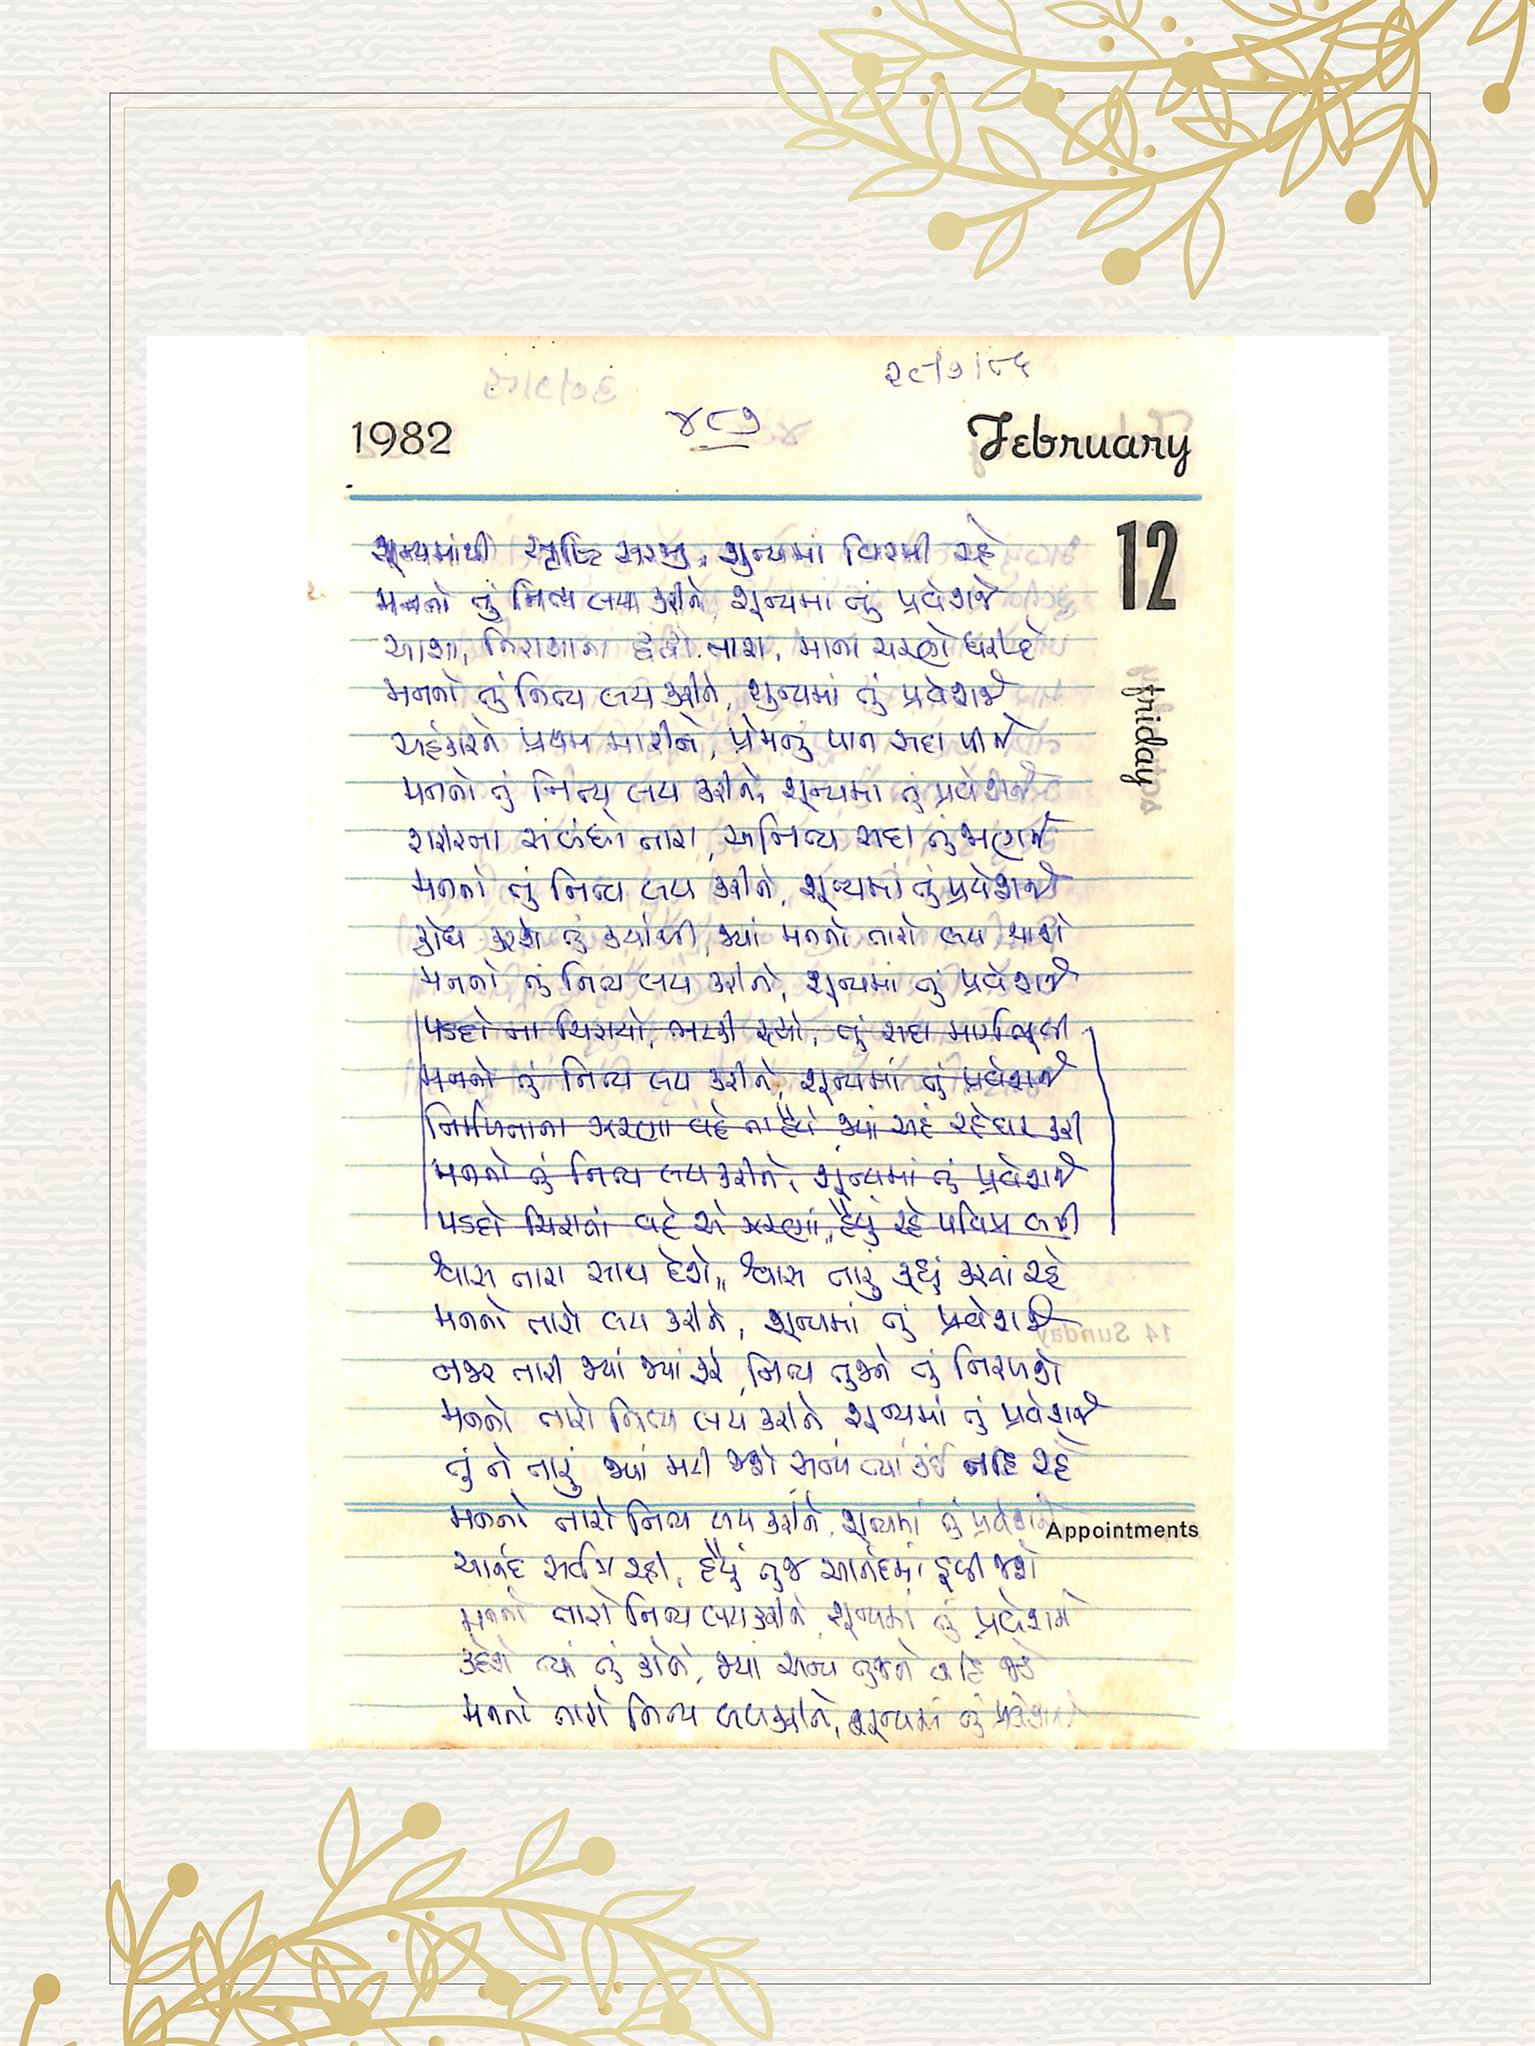 ૨૯/૭/૮૬
૪૮૭
1982
February
12
friday
શૂન્યમાંથી સૃષ્ટિ સરજી, શુન્યમાં વિરમી રહે
મનનો તું નિત્ય લય કરીને, શૂન્યમાં તું પ્રવેશજે
આશા, નિરાશાના તારા, માના ચરણે ધરી દે
મનનો તું નિત્ય લય કરીને, શુન્યમાં તું પ્રવેશજે
અહંકારને પ્રથમ મારીને, પ્રેમનું પાન સદા પીજે
મનનો તું નિત્ય લય કરીને, શૂન્યમાં તું પ્રવેશજે
શરીરના સંબંધો તારા, અનિત્ય સદા તું જાણજે
મનનો તું નિત્ય લય કરીને, શૂન્યમાં તું પ્રવેશજે
ક્રોધ કરશે તું ક્યાંથી, જ્યાં મનનો તારો લય થાશે
મનનો તું નિત્ય લય કરીને, શૂન્યમાં તું પ્રવેશજે
પડદો ના ચિરાયો, ભટકી રહ્યો, તું સદા
મનનો તું નિત્ય લય કરીને, શૂન્યમાં તું પ્રવેશજે
નિર્મળતાના ઝરણા વહે ના હૈયે જ્યાં અહં રહે ઘર કરી
મનનો તું નિત્ય લય કરીને, શૂન્યમાં તું પ્રવેશજે
પડદો ચિરાતાં વહે એ ઝરણાં, હૈયું રહે પવિત્ર બની
શ્વાસ તારા સાથ દેશે, શ્વાસ તારું કહ્યું કરતાં રહે
મનનો તારો લય કરીને, શૂન્યમાં તું પ્રવેશજે
નજર તારી જ્યાં જ્યાં ફરે, નિત્ય તુજને તું નિરખશે
મનનો તારો નિત્ય લય કરીને શૂન્યમાં તું પ્રવેશજે
તું ને તારું જ્યાં મટી જશે અન્ય ત્યાં કંઈ નહિ રહે
મનનો તારો નિત્ય લય કરીને, શૂન્યમાં તું પ્રવેશજે
Appointments
આનંદ સર્વત્ર રહી, હૈયું તુજ આનંદમાં ડૂબી જશે
મનનો તારો નિત્ય લય કરીને, શૂન્યમાં તું પ્રવેશજે
કહેશે ત્યાં તું કોને, જ્યાં અન્ય તુજને નહિ જડે
મનનો તારો નિત્ય લય કરીને, શૂન્યમાં તું પ્રવેશજે